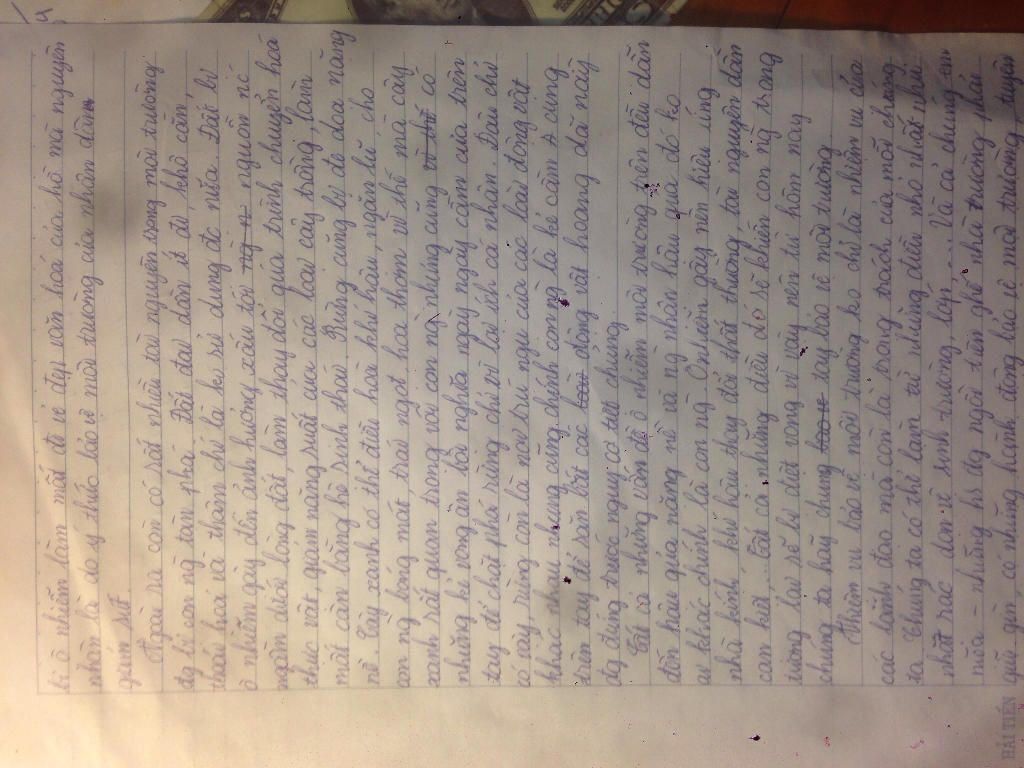 bị ô nhiễm làm mất đi vẻ đẹp văn hoá của hồ mà nguyên
nhân là do ý thức bảo vệ môi trường của nhân dân
giảm sút.
Ngoài ra còn có rất nhiều tài nguyên trong môi trường
đg bị con ng tàn phá. Đất đai dần ít đi, khô cằn,
thái hoá và thậm chí là ko sử dụng đc nữa. Đất bị
ô nhiễm gây đến ảnh hưởng xấu tới nguồn nc
ngầm dưới lòng đất, làm thay đổi quá trình chuyển hoá
thực vật, giảm năng suất của các loại cây trồng, làm
mất cân bằng hệ sinh thái. Rừng cũng bị đe doạ nặng
nề
Cây xanh có thể điều hoà khí hậu, ngăn lũ cho
con ng bóng mát trái ngọt hoa thơm vì thế mà cây
xanh rất quan trọng với con ng nhưng cũng có
những kẻ vong ân bội nghĩa ngày ngày cầm cưa trên
tay để chặt phá rừng chỉ vì lợi ích cá nhân. Đâu chỉ
có vậy rừng còn là nơi trú ngụ của các loài động vật
khác nhau nhưng cũng chính con ng là kẻ cầm súng
trên tay để săn bắt các động vật hoang dã này
đg đứng trước nguy cơ tiệt chủng.
Tất cả những vấn đề ô nhiễm môi trường trên đều dẫn
đến hậu quả nặng nề và ng nhận hậu quả đó ko
ai khác chính là con ng. Ô nhiễm gây nên hiệu ứng
nhà kính, khí hậu thay đổi thất thường, tài nguyên dần
cạn kiệt. Tất cả những điều đó sẽ khiến con ng trong
tương lai sẽ bị diệt vong vì vậy nên từ hôm nay
chúng ta hãy chung tay bảo vệ môi trường
Nhiệm vụ bảo vệ môi trường ko chỉ là nhiệm vụ của
các lãnh đạo mà còn là trọng trách của mỗi chúng
ta. Chúng ta có thể làm từ những điều nhỏ nhất như:
nhặt rác, dọn vệ sinh trường, lớp,... Và cả chúng em
nữa - những hs đg ngồi trên ghế nhà trường phải
giữ gìn có những hành động bảo vệ môi trường, tuyên
HẢI TIẾN